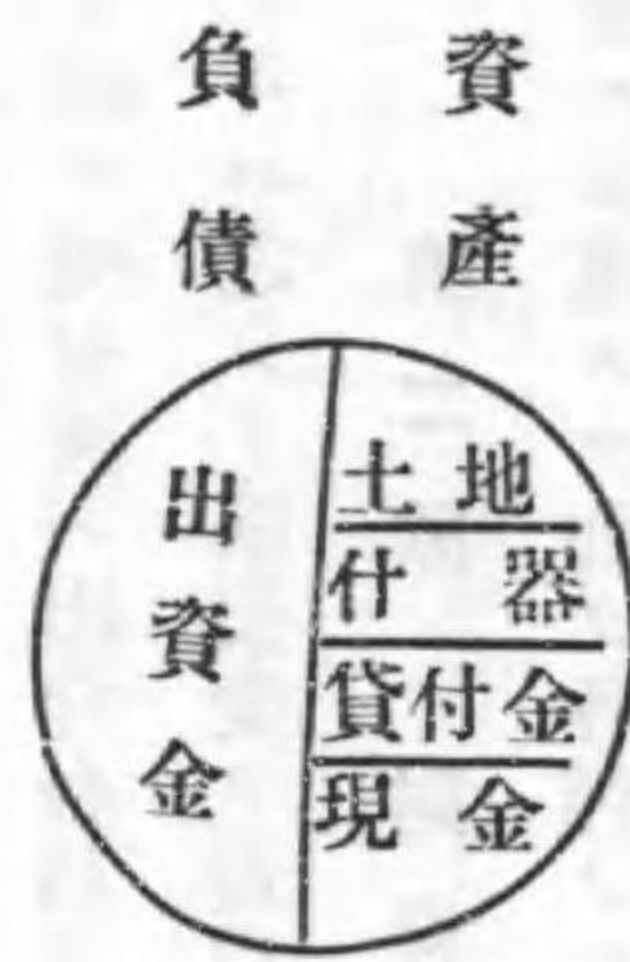 資產
負債
土地
什器
貸付金
現金
出資金